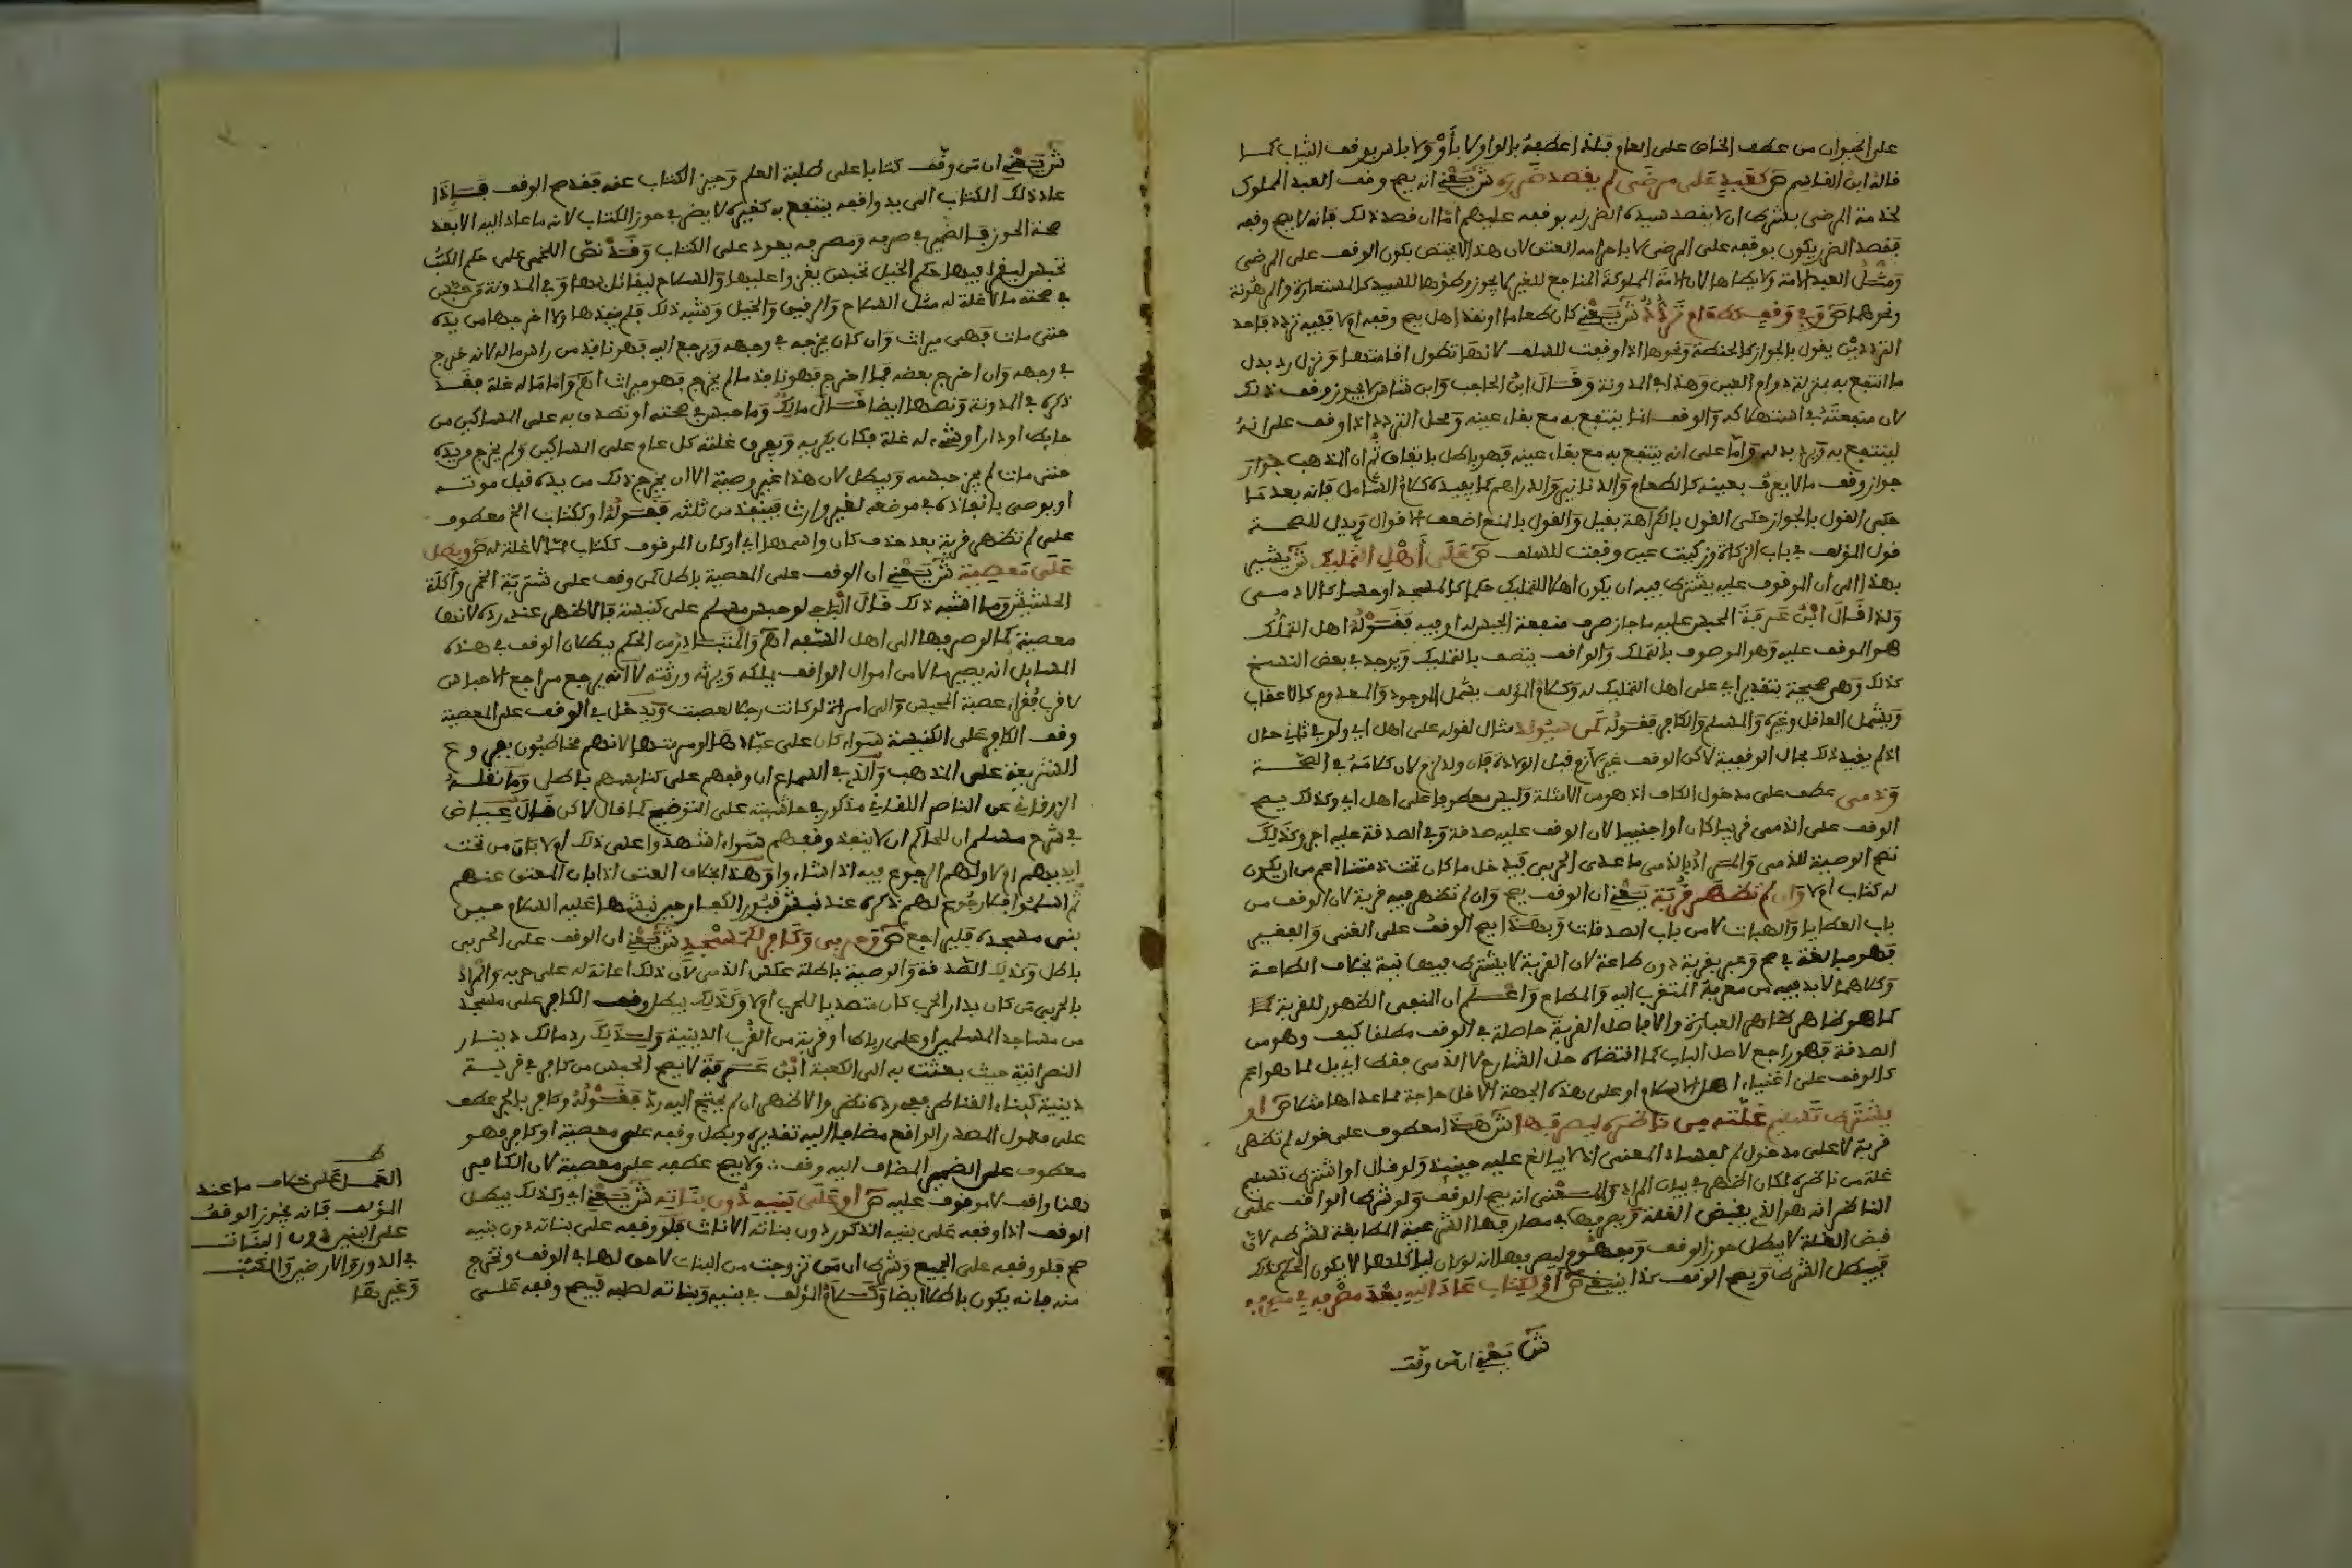 على الحيوان من عطف الخاص على العام فلذا عطفه بالواو لا بأو ولا باس بوقف الثياب كما
قاله ابن القاسم ص كعبد على مرضى لم يقصد ضرره ش يعني انه يصح وقف العبد المملوك
لخدمة المرضى بشرط ان لا يقصد سيده الضرر له بوقفه عليهم اما ان قصد ذلك فانه لا يصح وقفه
فقصد الضرر يكون بوقفه على المرضى لا باحرامه العتق لان هذا لا يختص بكون الوقف على المرضى
ومثل العبد الامة ولا يطاها لان الامة المملوكة المنافع للغير لا يجوز وطؤها للسيد كالمستعارة والمرهونة
ونحوهما ص وفي وقف كطعام تردد ش يعني كان طعاما او نقدا هل يصح وقفه او لا ففيه تردد فاحد
التردديـن يقول بالجواز كالحنطة ونحوها اذا اوقفت للسلف لانها تطول اقامتها ونزل رد بدل
ما انتفع به بمنزلة دوام العين وهذا في المدونة وقال ابن الحاجب وابن شاس لا يجوز وقف ذلك
لان منفعته في استهلاكه والوقف انما ينتفع به مع بقاء عينه ومحل التردد اذا وقف على انه
لينتفع به ويرد بدله واما على انه ينتفع به مع بقاء عينه فهو باطل باتفاق ثم ان المذهب جواز
جواز وقف ما لا يعرف بعينه كالطعام والدنانير والدراهم كما يفيده كلام الشامل فانه بعد ما
حكى القول بالجواز حكى القول بالكراهة بقيل والقول بالمنع اضعف الاقوال ويدل للصحة
قول المؤلف في باب الزكاة وزكيت عين وقفت للسلف ص على أهل التمليك ش يشير
بهذا الى ان الموقوف عليه يشترط فيه ان يكون اهلا للتمليك حكما كالمسجد او حسا كالادمي
ولذا قال ابن عرفة المحبس عليه ما جاز صرف منفعة الحبس له او فيه فقوله اهل التملك
هو الموقف عليه وهو الموصوف بالتملك والواقف يتصف بالتمليك ويوجد في بعض النسخ
كذلك وهي صحيحة بتقدير اي على اهل التمليك له وكلام المؤلف يشمل الموجود والمعدوم كالاعقاب
ويشمل العاقل وغيره والمسلم والكافر فقوله كمن سيولد مثال لقوله على اهل اي ولو في ثاني حال
اذ لم يقيد ذلك بحال الوقفية لاكن الوقف غير لازم قبل الولادة فان ولد لزم لان كلامه في الصحة
وذمي عطف على مدخول الكاف اذ هو من الامثلة وليس معطوفا على اهل اي وكذلك يصح
الوقف على الذمي قريبا كان او اجنبيا لان الوقف عليه صدقة وفي الصدقة عليه اجر وكذلك
تصح الوصية للذمي والمراد بالذمي ما عدى الحربي فيدخل ما كان تحت ذمتنا اعم من ان يكون
له كتاب او لا وان لم تظهر قربة يعني ان الوقف يصح وان لم تظهر فيه قربة لان الوقف من
باب العطايا والهبات لا من باب الصدقات وبهذا يصح الوقف على الغني والفقير
فهو مبالغة في صح وعبر بقربة دون طاعة لان القربة لا يشترط فيها نية بخلاف الطاعة
وكلاهما لا بد فيه من معرفة المتقرب اليه والمطاع واعلم ان المنفي الظهور للقربة
كما هو ظاهر ظاهر العبارة والا فاصل القربة حاصلة في الوقف مطلقا كيف وهو من
الصدقة فهو راجع لاصل الباب كما اقتضاه حل الشارح لا الذمي فقط اي بل لما هو اعم
كالوقف على اغنياء اهل الاسلام او على هذه الجهة الاقل حاجة مما عداها مثلا ص او
يشترط تسليم غلته من ناظره ليصرفها ش هذا معطوف على قوله لم تظهر
قربة لا على مدخول لم لفساد المعنى اذ لا يبالغ عليه حينئذ ولو قال او اشترط تسليم
غلة من ناظره لكان اظهر في بيان المراد والمعنى انه يصح الوقف ولو شرط الواقف على
الناظر انه هو الذي يقبض الغلة ويصرفها في مصارفها الشرعية المطابقة لشرطه لان
قبض الغلة لا يبطل حوز الوقف ومفهوم ليصرفها انه لو كان لياكلها لا يكون الحكم كذلك
فيبطل الشرط ويصح الوقف كذا ينبغي ص او ككتاب عاد اليه بعد صرفه في مصرفه
ش يعني ان من وقف
ش يعني ان من وقف كتابا على طلبة العلم وحيز الكتاب عنه فقد صح الوقف فإذا
عاد ذلك الكتاب الى يد واقفه ينتفع به كغيره لا يضر في حوز الكتاب لانه ما عاد اليه الا بعد
صحة الحوز فالضمير في صرفه ومصرفه يعود على الكتاب وقد نص اللخمي على حكم الكتب
تحبس ليقرا فيها حكم الخيل تحبس يغزوا عليها والسلاح ليقاتل بها وفي المدونة من حبس
في صحته ما لا غلة له مثل السلاح والرقيق والخيل وشبه ذلك فلم ينفذها ولا اخرجها من يده
حتى مات فهي ميراث وان كان يخرجه في وجهه ويرجع اليه فهو نافذ من راس ماله لانه خرج
في وجهه وان اخرج بعضه فما اخرج فهو نافذ وما لم يخرج فهو ميراث اه واما ما له غلة فقد
ذكره في المدونة ونصها ايضا قال مالك وما حبس في صحته او تصدق به على المساكين من
حايط او دار او شيء له غلة فكان يكريه ويفرق غلته كل عام على المساكين ولم يخرج من يده
حتى مات لم يجز حبسه ويبطل لان هذا غير وصية الا ان يخرج ذلك من يده قبل موته
او يوصي بانفاذه في مرضه لغير وارث فينفذ من ثلثه فقوله او ككتاب الخ معطوف
على لم تظهر قربة بعد حذف كان واسمها اي او كان الموقوف ككتاب مما لا غلة له ص وبطل
على معصية ش يعني ان الوقف على المعصية باطل كمن وقف على شربة الخمر وأكلة
الحشيش وما اشبه ذلك قال الباجي لو حبس مسلم على كنيسة فالاظهر عندي رده لانها
معصية كما لو صرفها الى اهل الفسق اه والمتبادر من الحكم ببطلان الوقف في هذه
المسايل انه يصير مالا من اموال الواقف يملكه ويرثه ورثته لا انه يرجع مراجع الاحباس
لاقرب فقراء عصبة المحبس والى امراة لو كانت رجلا لعصبت ويدخل في الوقف على المعصية
وقف الكافر على الكنيسة سواء كان على عبادها او مرمتها لانهم مخاطبون بفروع
الشريعة على المذهب والذي في السماع ان وقفهم على كنايسهم باطل وما نقله
الزرقاني عن الناصر اللقاني مذكور في حاشيته على التوضيح كما قال لاكن قال عياض
في شرح مسلم ان للحاكم ان لا ينفذ وقفهم سواء اشهدوا على ذلك او لا بان من تحت
ايديهم او لا ولهم الرجوع فيه اذا شاءوا وهذا بخلاف العتق اذا بان المعتق عنهم
ثم اسلموا فلا رجوع لهم ذكره عند نبش قبور الكفار حين نبشها عليه السلام حين
بنى مسجده فليراجع ص وحربي وكافر لكمسجد ش يعني ان الوقف على الحربي
باطل وكذلك الصدقة والوصية باطلة عكس الذمي لان ذلك اعانة له على حربه والمراد
بالحربي من كان بدار الحرب كان متصديا للحرب او لا وكذلك يبطل وقف الكافر على مسجد
من مساجد المسلمين او على رباط او قربة من القرب الدينية ولذلك رد مالك دينار
النصرانية حيث بعثت به الى الكعبة ابن عرفة لا يصح الحبس من كافر في قربة
دينية كبناء القناطر ففي رده نظر والاظهر ان لم يحتج اليه رد فقوله وكافر بالجر عطف
على معمول المصدر الواقع مضافا اليه تقديره وبطل وقفه على معصية او كافر فهو
معطوف على الضمير المضاف اليه وقف ولا يصح عطفه على معصية لان الكافر
هنا واقف لا موقوف عليه ص او على بنيه دون بناته ش يعني اي وكذلك يبطل
الوقف اذا وقفه على بنيه الذكور دون بناته الاناث فلو وقفه على بناته دون بنيه
صح فلو وقفه على الجميع وشرط ان من تزوجت من البنات لا حق لها في الوقف وتخرج
منه فانه يكون باطلا ايضا وكلام المؤلف في بنيه وبناته لصلبه فيصح وقفه على
ط
العمل على خلاف ما عند
المؤلف فانه يجوز الوقف
على البنين دون البنات
في الدور والارضين والكتب
وغيرها